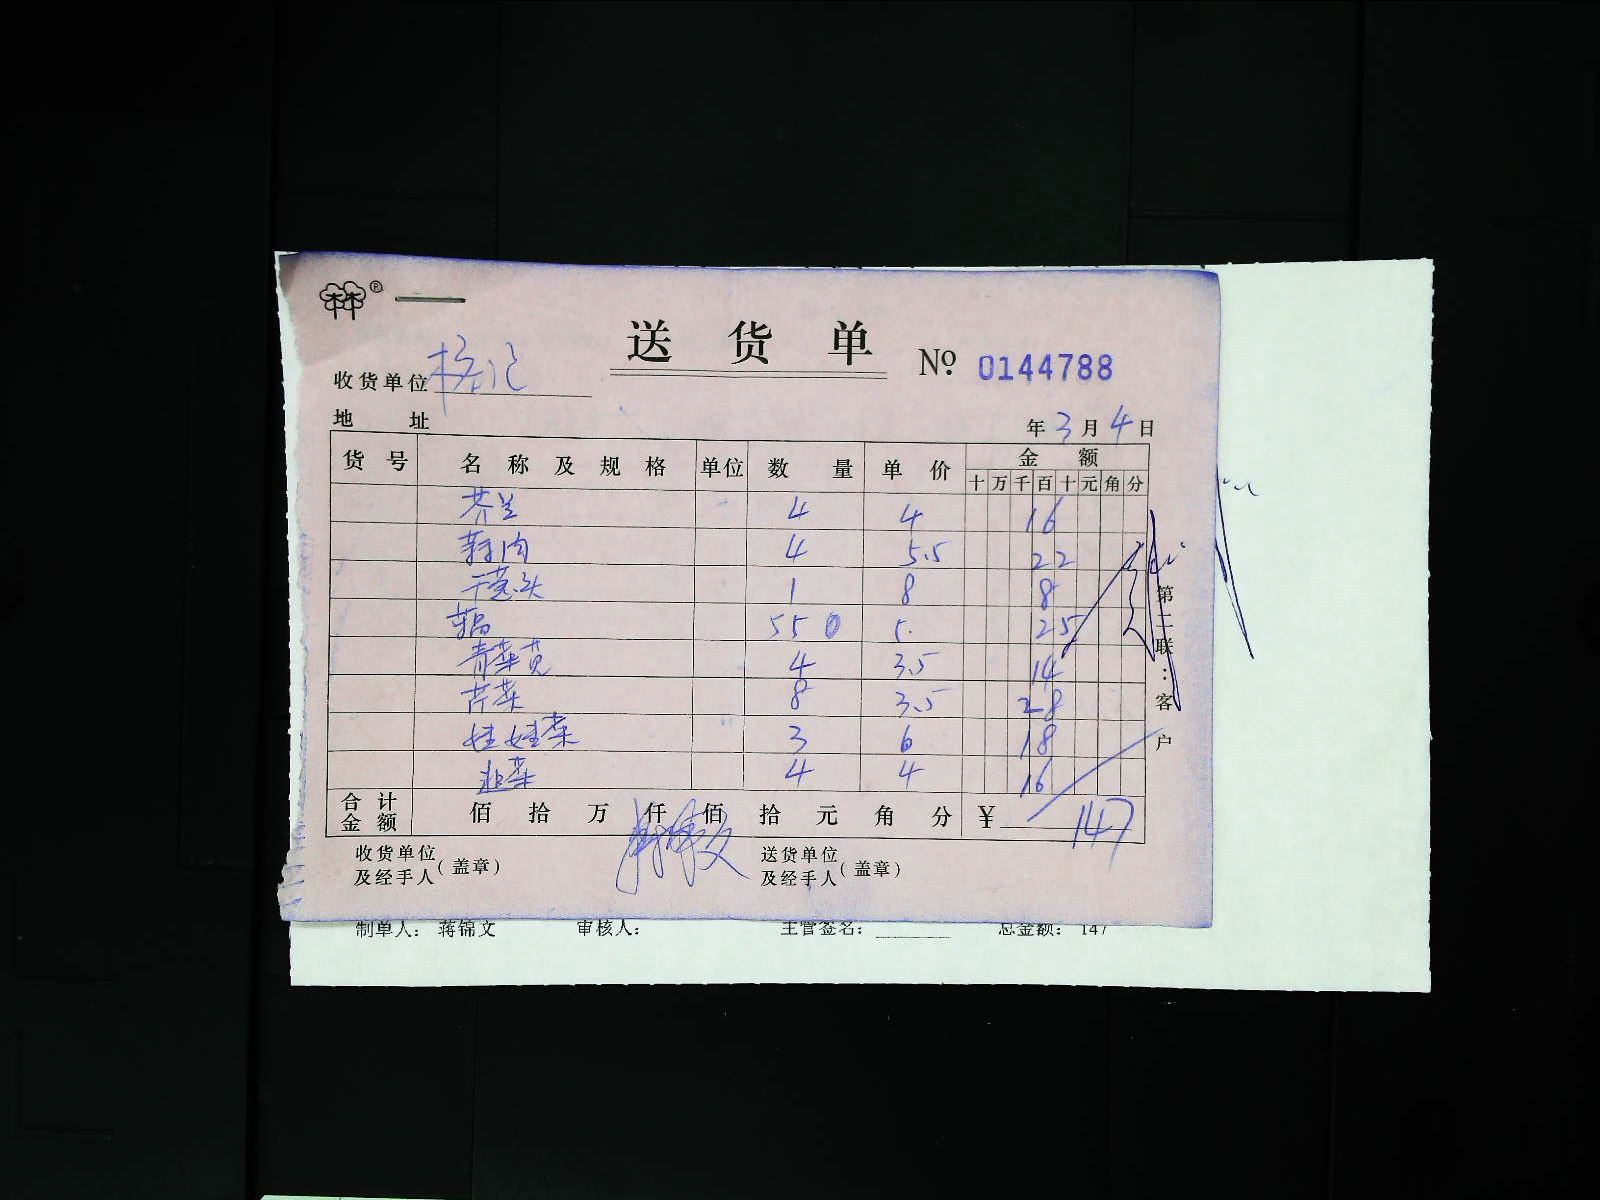 林®
送货单 № 0144788
收货单位 杨记
地址 年3月4日
货号 名称及规格 单位 数量 单价 金额
十 万 千 百 十 元 角 分
芥兰 4 4 16
4 5.5 22
干葱头 1 8 8
5 5 0 5. 25
青菜苋 4 3.5 14
芹菜 8 3.5 28
娃娃菜 3 6 18
韭菜 4 4 16
合计金额 佰 拾 万 仟 佰 拾 元 角 分 ¥ 147
收货单位及经手人(盖章) 送货单位及经手人(盖章)
第二联:客户
制单人: 蒋锦文 审核人: 主管签名: 总金额: 147